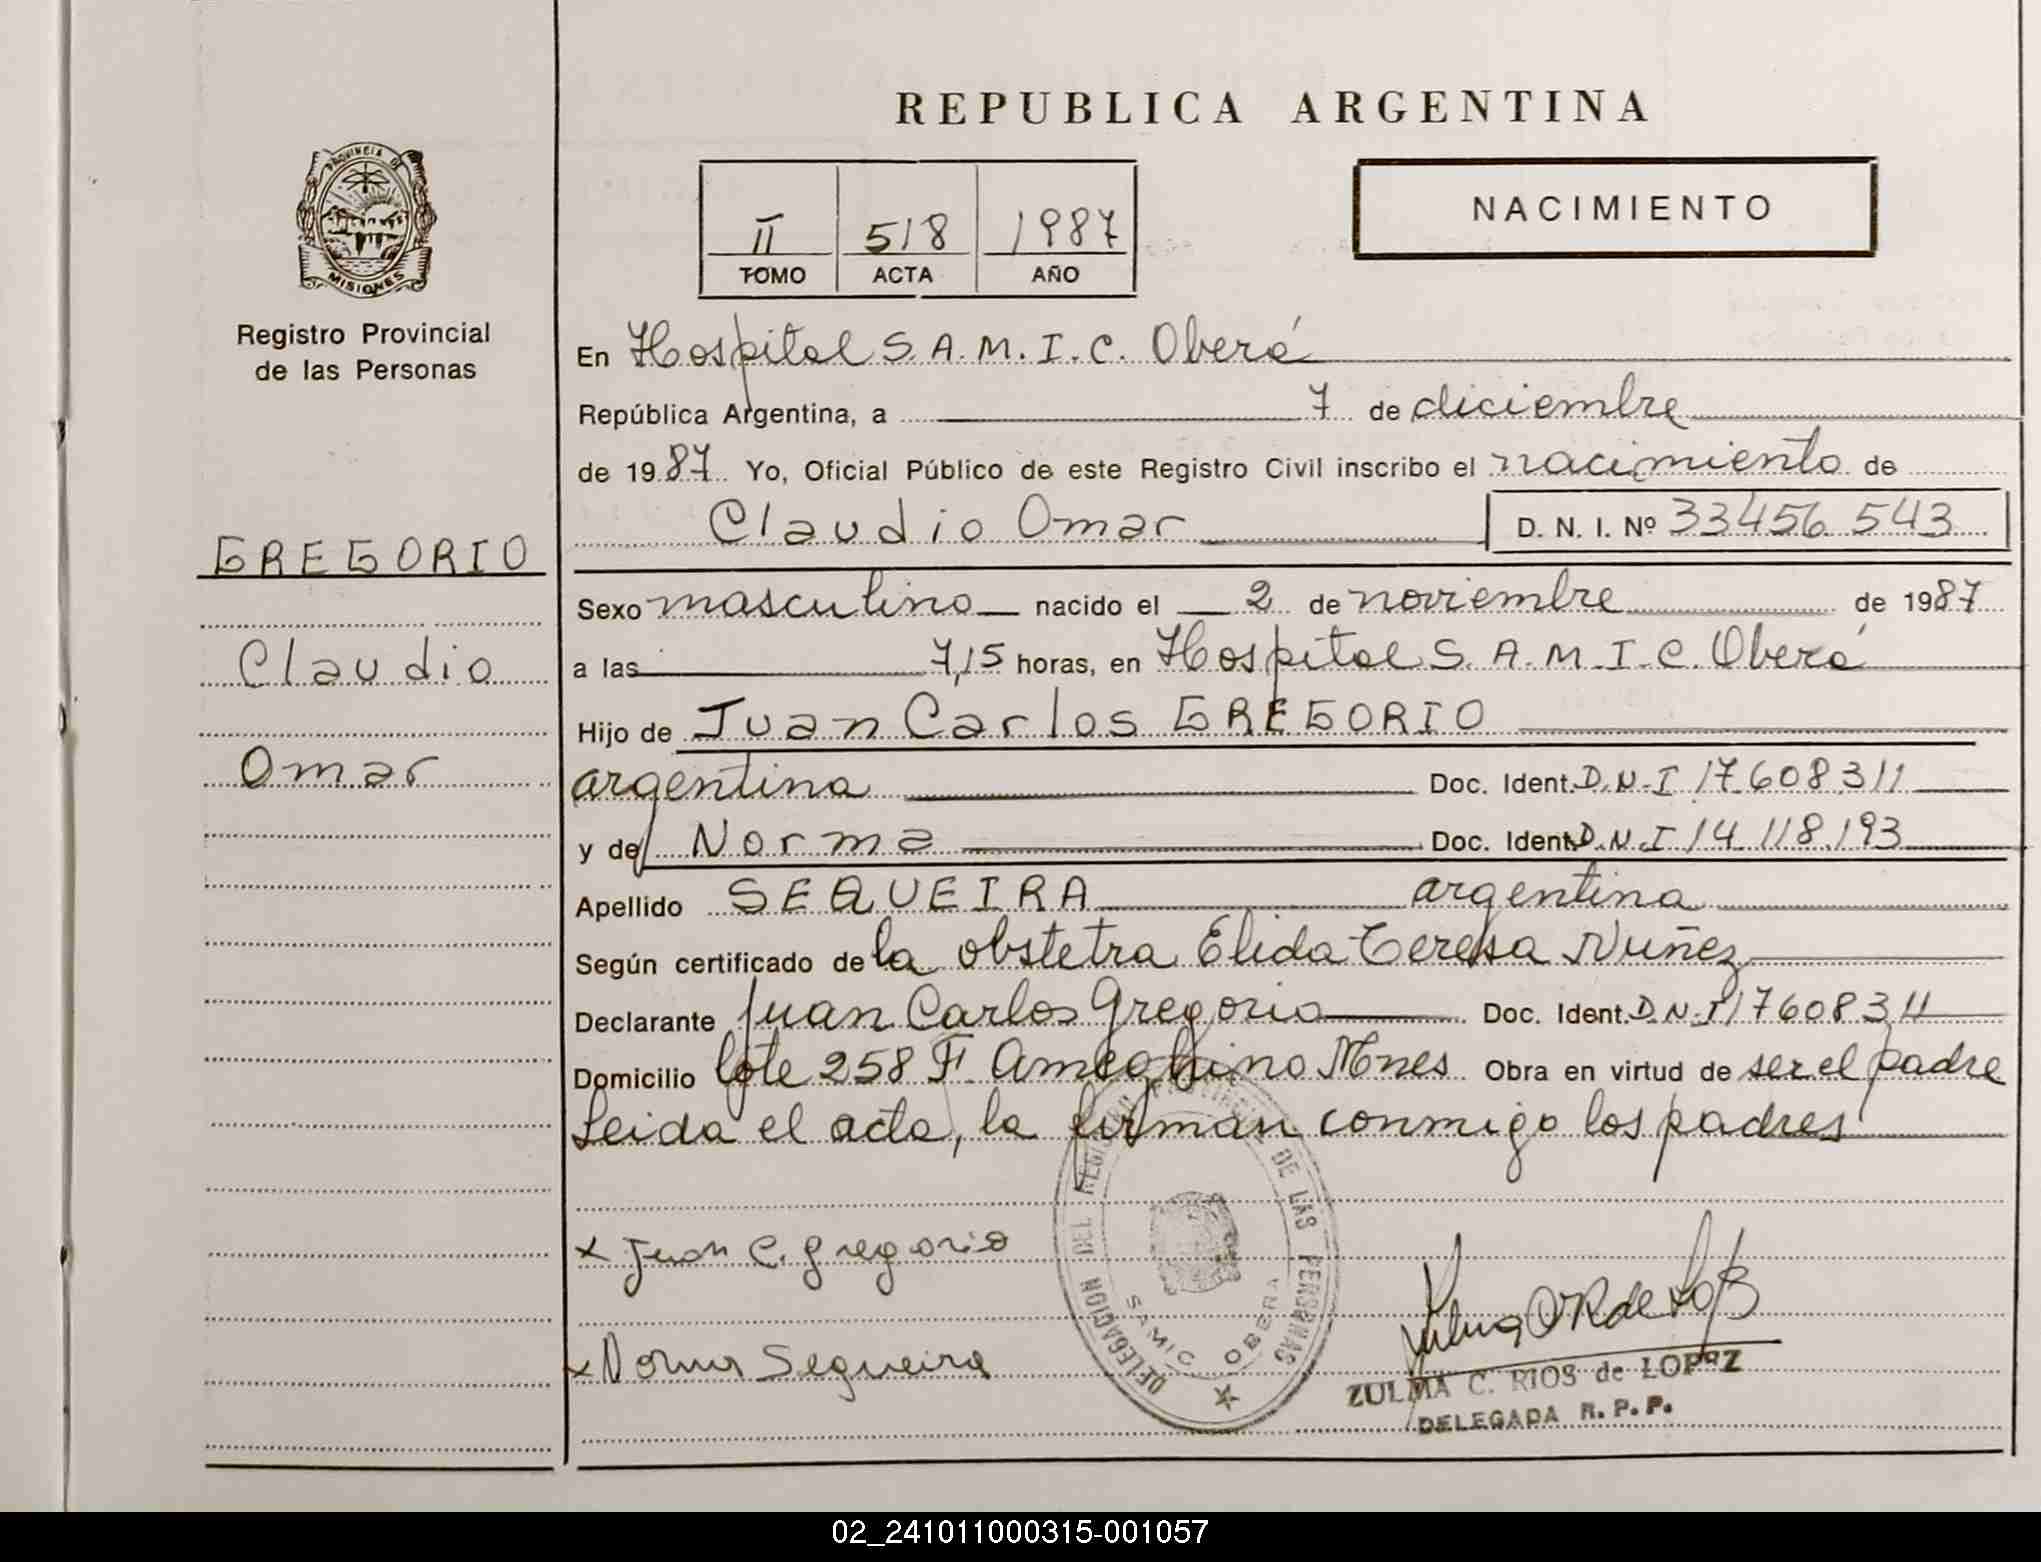 REPUBLICA ARGENTINA
PROVINCIA DE
MISIONES
Registro Provincial
de las Personas
II 518 1987
TOMO ACTA AÑO
NACIMIENTO
En Hospital S.A.M.I.C. Oberá
República Argentina, a 7 de diciembre
de 1987 Yo, Oficial Público de este Registro Civil inscribo el nacimiento de
Claudio Omar D. N. I. Nº 33456543
GREGORIO
Claudio
Omar
Sexo masculino nacido el 2 de noviembre de 1987
a las 7,15 horas, en Hospital S.A.M.I.C. Oberá
Hijo de Juan Carlos GREGORIO
argentina Doc. Ident. D.N.I 17.608.311
y de Norma Doc. Ident. D.N.I 14.118.193
Apellido SEQUEIRA argentina
Según certificado de la obstetra Elida Teresa Nuñez
Declarante Juan Carlos Gregorio Doc. Ident. D.N.I 17608311
Domicilio lote 258 F. Ameghino Mnes Obra en virtud de ser el padre
Leida el acta, la firman conmigo los padres
x Juan C. Gregorio
x Norma Sequeira
DELEGACION DEL REGISTRO PROVINCIAL DE LAS PERSONAS
SAMIC OBERA
ZULMA C. RIOS de LOPEZ
DELEGADA R. P. P.
02_241011000315-001057